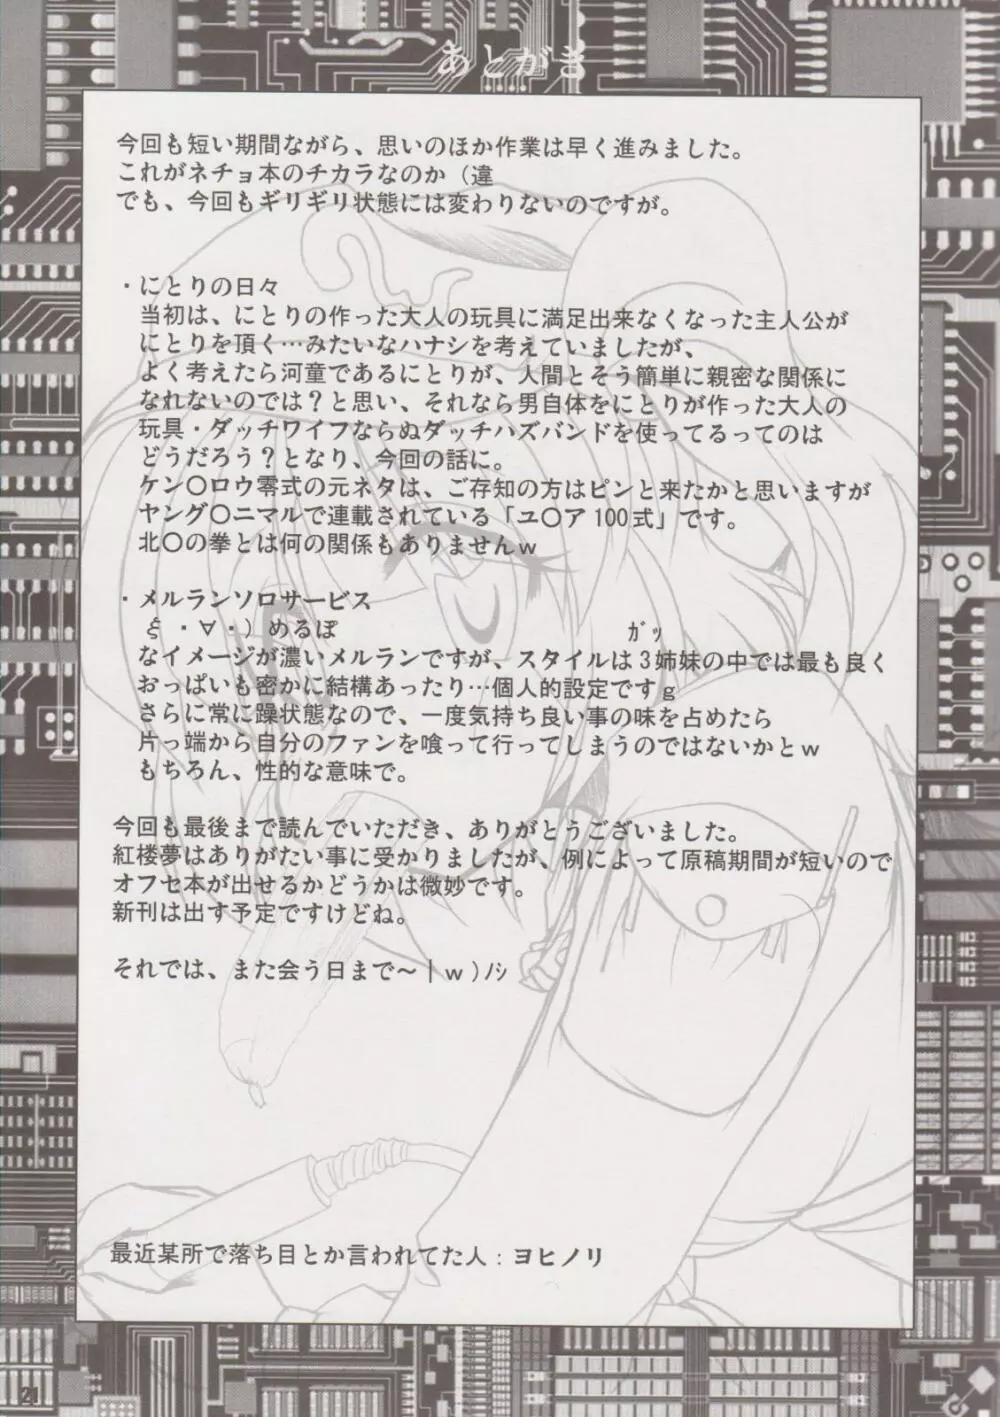 あとがき
今回も短い期間ながら、思いのほか作業は早く進みました。
これがネチョ本のチカラなのか（違
でも、今回もギリギリ状態には変わりないのですが。
・にとりの日々
当初は、にとりの作った大人の玩具に満足出来なくなった主人公が
にとりを頂く…みたいなハナシを考えていましたが、
よく考えたら河童であるにとりが、人間とそう簡単に親密な関係に
なれないのでは？と思い、それなら男自体をにとりが作った大人の
玩具・ダッチワイフならぬダッチハズバンドを使ってるってのは
どうだろう？となり、今回の話に。
ケン〇ロウ零式の元ネタは、ご存知の方はピンと来たかと思いますが
ヤング〇ニマルで連載されている「ユ〇ア100式」です。
北〇の拳とは何の関係もありませんｗ
・メルランソロサービス
ξ ・∀・）めるぽ　　　　　　　　ｶﾞｯ
なイメージが濃いメルランですが、スタイルは3姉妹の中では最も良く
おっぱいも密かに結構あったり…個人的設定ですｇ
さらに常に躁状態なので、一度気持ち良い事の味を占めたら
片っ端から自分のファンを喰って行ってしまうのではないかとｗ
もちろん、性的な意味で。
今回も最後まで読んでいただき、ありがとうございました。
紅楼夢はありがたい事に受かりましたが、例によって原稿期間が短いので
オフセ本が出せるかどうかは微妙です。
新刊は出す予定ですけどね。
それでは、また会う日まで～｜ｗ）ﾉｼ
最近某所で落ち目とか言われてた人：ヨヒノリ
21